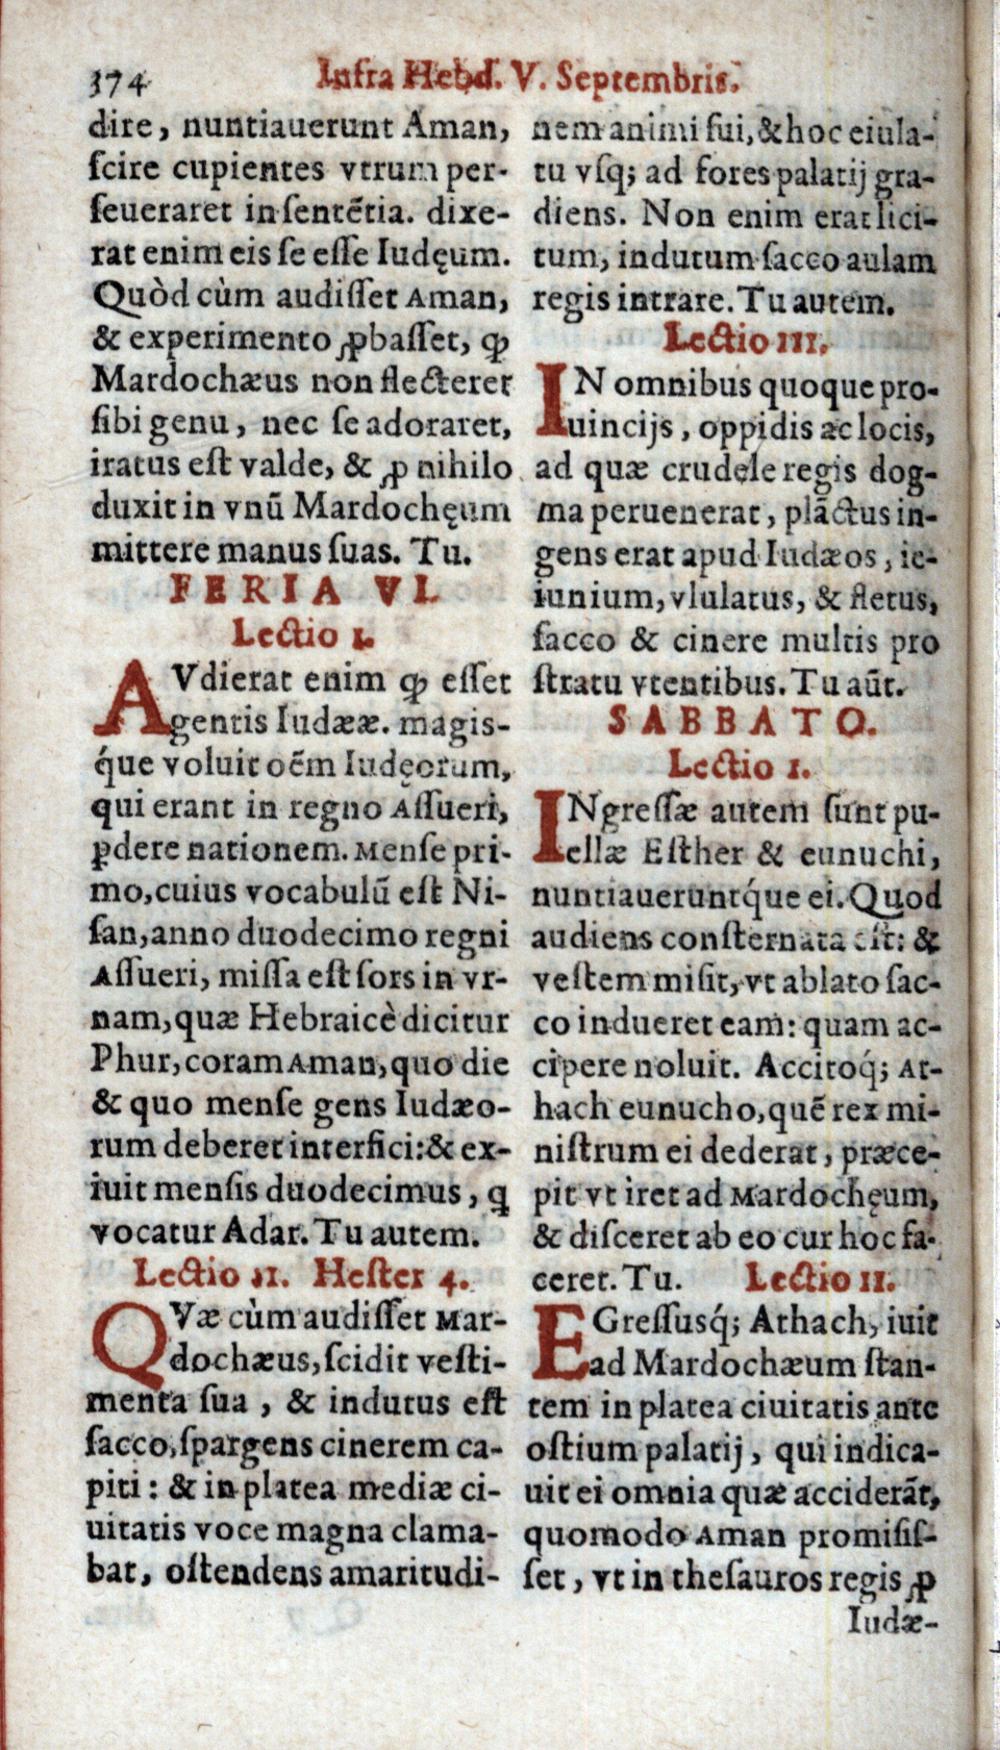 374 Infra Hebd. V. Septembris.
dire, nuntiauerunt Aman,
ſcire cupientes vtrum per-
ſeueraret in ſentẽtia. dixe-
rat enim eis ſe eſſe Iudęum.
Quòd cùm audiſſet Aman,
& experimento ꝓbaſſet, ꝙ
Mardochæus non flecteret
ſibi genu, nec ſe adoraret,
iratus eſt valde, & ꝓ nihilo
duxit in vnũ Mardochęum
mittere manus ſuas. Tu.
FERIA VI.
Lectio I.
AVdierat enim ꝙ eſſet
gentis Iudææ. magis-
q́ue voluit oẽm Iudęorum,
qui erant in regno Aſſueri,
ꝑdere nationem. Menſe pri-
mo, cuius vocabulũ eſt Ni-
ſan, anno duodecimo regni
Aſſueri, miſſa eſt ſors in vr-
nam, quæ Hebraicè dicitur
Phur, coram Aman, quo die
& quo menſe gens Iudæo-
rum deberet interfici: & ex-
iuit menſis duodecimus, ꝗ
vocatur Adar. Tu autem.
Lectio II. Heſter 4.
QVæ cùm audiſſet Mar-
dochæus, ſcidit veſti-
menta ſua, & indutus eſt
ſacco, ſpargens cinerem ca-
piti: & in platea mediæ ci-
uitatis voce magna clama-
bat, oſtendens amaritudi-
nem animi ſui, & hoc eiula-
tu vſq; ad fores palatij gra-
diens. Non enim erat lici-
tum, indutum ſacco aulam
regis intrare. Tu autem.
Lectio III.
IN omnibus quoque pro-
uincijs, oppidis ac locis,
ad quæ crudele regis dog-
ma peruenerat, plãctus in-
gens erat apud Iudæos, ie-
iunium, vlulatus, & fletus,
ſacco & cinere multis pro
ſtratu vtentibus. Tu aũt.
SABBATO.
Lectio I.
INgreſſæ autem ſunt pu-
ellæ Eſther & eunuchi,
nuntiaueruntq́ue ei. Quod
audiens conſternata eſt: &
veſtem miſit, vt ablato ſac-
co indueret eam: quam ac-
cipere noluit. Accitoq́; At-
hach eunucho, quẽ rex mi-
niſtrum ei dederat, præce-
pit vt iret ad Mardochęum,
& diſceret ab eo cur hoc fa-
ceret. Tu. Lectio II.
EGreſſusq́; Athach, iuit
ad Mardochæum ſtan-
tem in platea ciuitatis ante
oſtium palatij, qui indica-
uit ei omnia quæ acciderãt,
quomodo Aman promiſiſ-
ſet, vt in theſauros regis ꝓ
Iudæ-